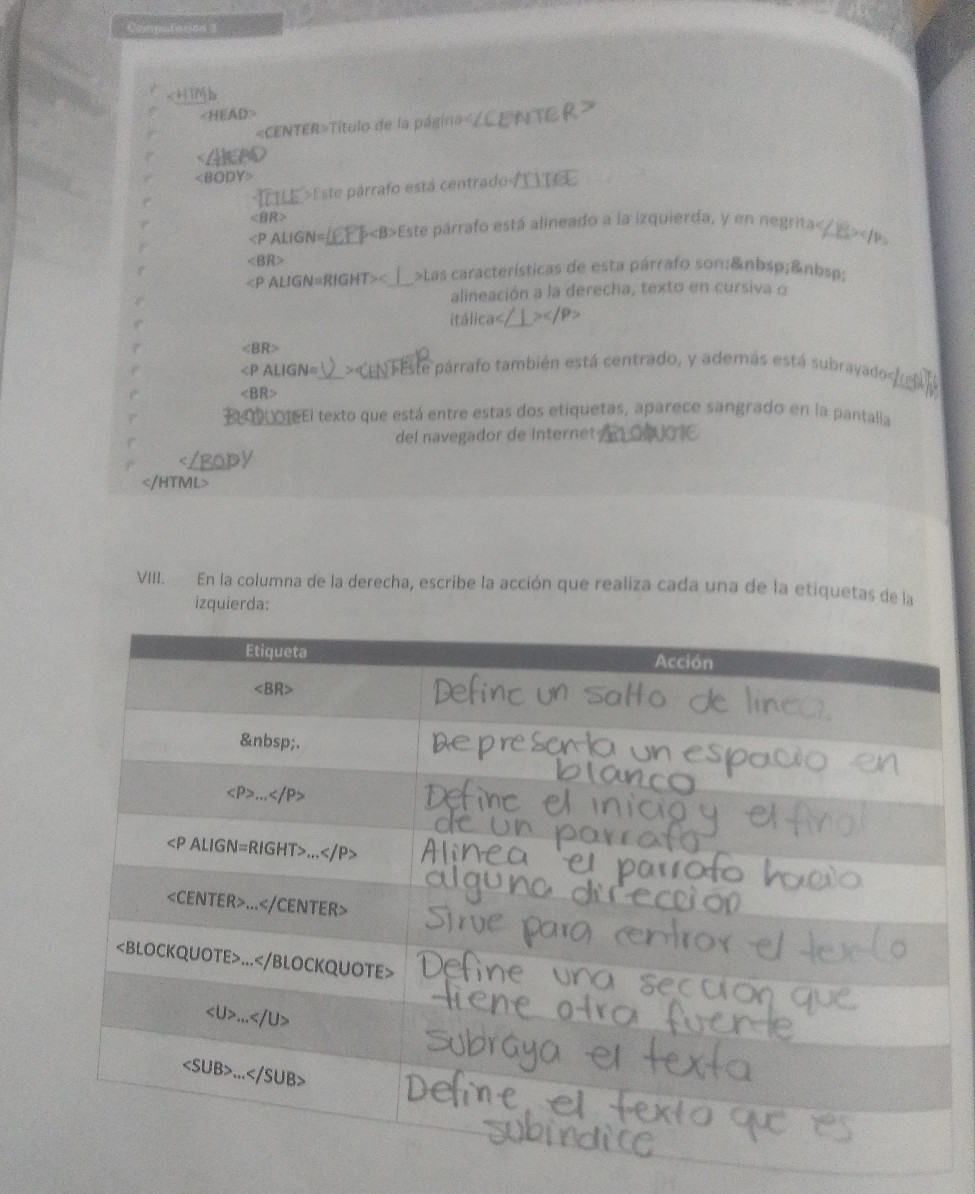 Computación 3
<HTML
<HEAD>
<CENTER>Título de la página</CENTER>
</HEAD
<BODY>
TITLE>Este párrafo está centrado/TITLE
<BR>
<P ALIGN=LEFT><B>Este párrafo está alineado a la izquierda, y en negrita</B></P>
<BR>
<P ALIGN=RIGHT><I>Las características de esta párrafo son:&nbsp;&nbsp;
alineación a la derecha, texto en cursiva o
itálica</I></P>
<BR>
<P ALIGN=U><CENTER Este párrafo también está centrado, y además está subrayado
<BR>
BLOQUOTE El texto que está entre estas dos etiquetas, aparece sangrado en la pantalla
del navegador de Internet /BLOQUOTE
</BODY
</HTML>
VIII. En la columna de la derecha, escribe la acción que realiza cada una de la etiquetas de la
izquierda:
Etiqueta Acción
<BR> Define un salto de linea.
&nbsp;. Representa un espacio en
blanco
<P>...</P> Define el inicio y el final
de un parrafo
<P ALIGN=RIGHT>...</P> Alinea el parrafo hacia
alguna direccion
<CENTER>...</CENTER> Sirve para centrar el texto
<BLOCKQUOTE>...</BLOCKQUOTE> Define una seccion que
tiene otra fuente
<U>...</U> subraya el texta
<SUB>...</SUB> Define el texto que es
subindice